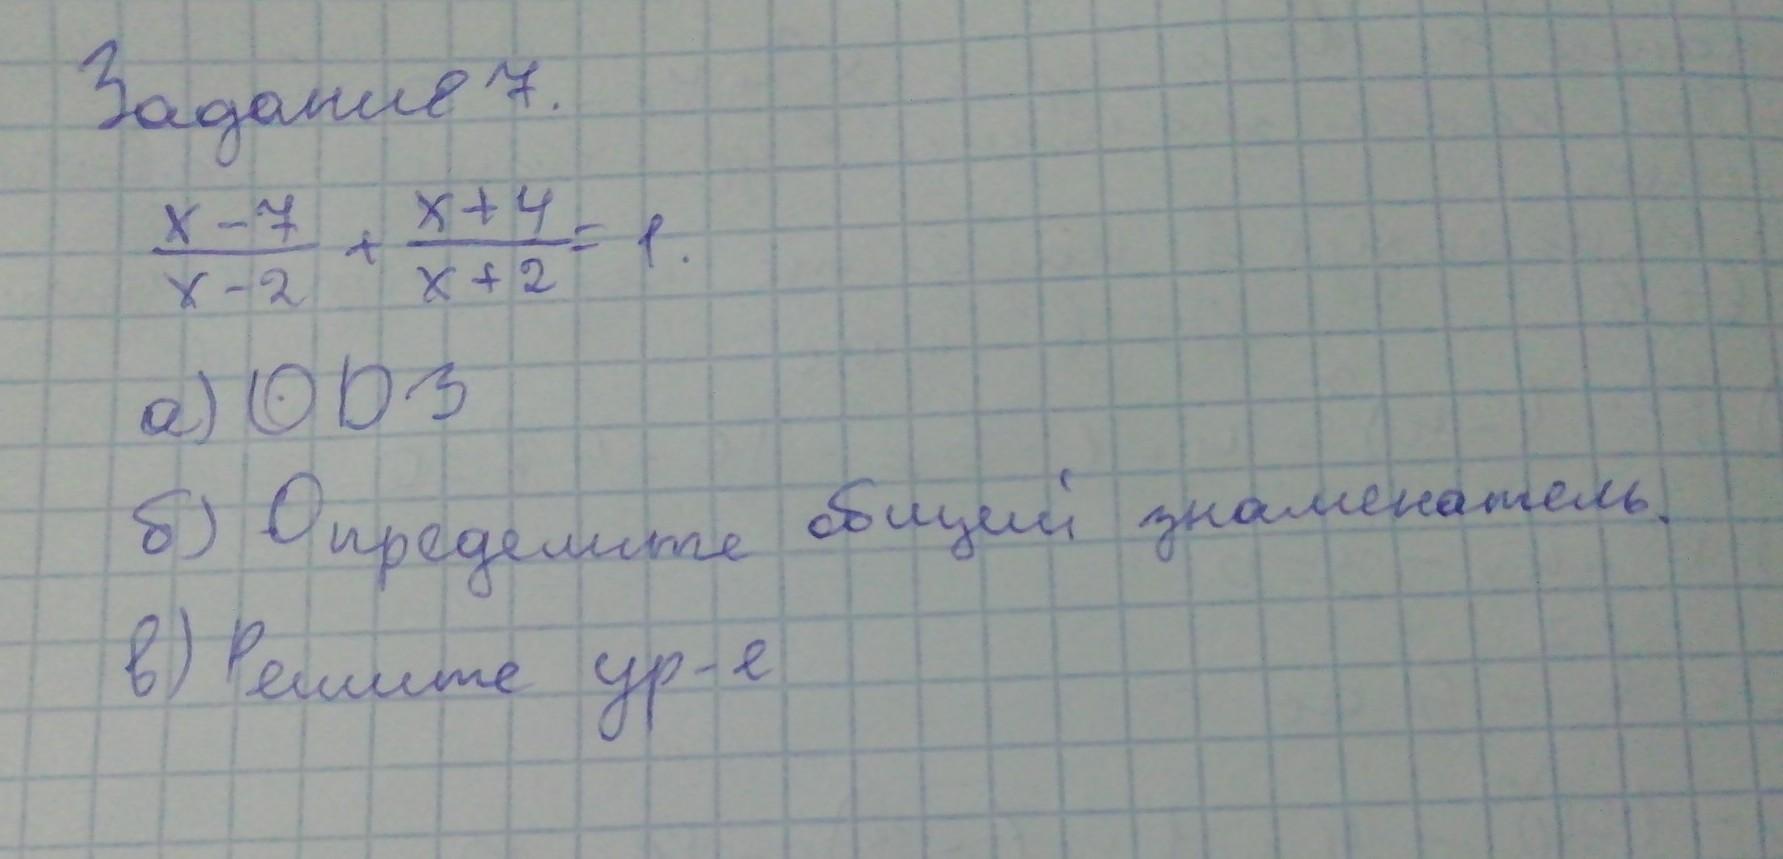 Задание 7.
x-7/x-2 + x+4/x+2 = 1.
а) ОДЗ
б) Определите общий знаменатель.
в) Решите ур-е